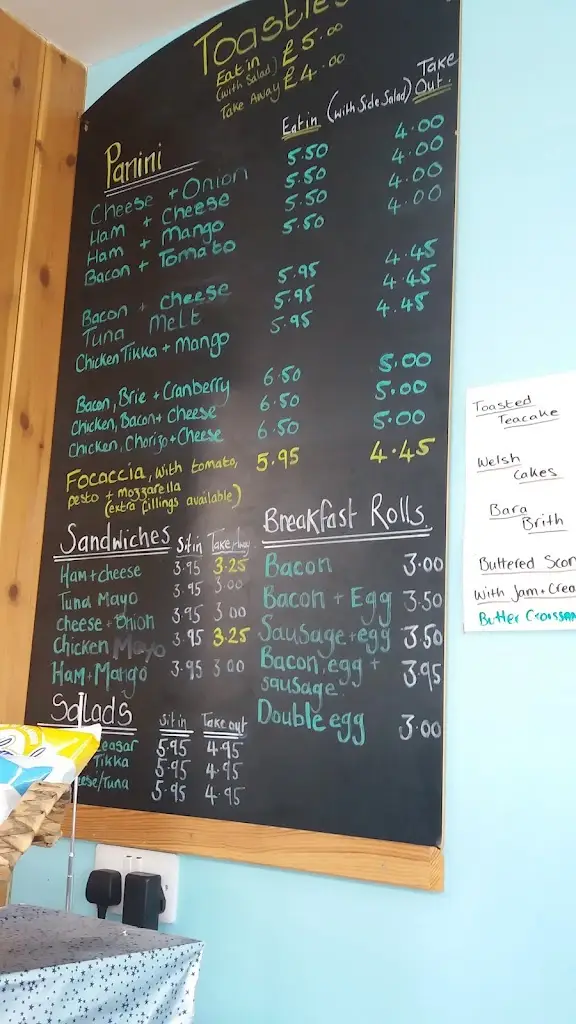 Toasties
Eat in £5.00
(with Salad)
Take Away £4.00
Eat in (with Side Salad) Take Out.
Panini
Cheese + Onion 5.50 4.00
Ham + Cheese 5.50 4.00
Ham + Mango 5.50 4.00
Bacon + Tomato 5.50 4.00
Bacon + cheese 5.95 4.45
Tuna Melt 5.95 4.45
Chicken Tikka + Mango 5.95 4.45
Bacon, Brie + Cranberry 6.50 5.00
Chicken, Bacon + Cheese 6.50 5.00
Chicken, Chorizo + Cheese 6.50 5.00
Focaccia, with tomato, 5.95 4.45
pesto + mozzarella
(extra fillings available)
Sandwiches Sit in Take Away
Ham + cheese 3.95 3.25
Tuna Mayo 3.95 3.00
cheese + onion 3.95 3.00
Chicken Mayo 3.95 3.25
Ham + Mango 3.95 3.00
Salads Sit in Take out
easar 5.95 4.95
Tikka 5.95 4.95
ese/Tuna 5.95 4.95
Breakfast Rolls.
Bacon 3.00
Bacon + Egg 3.50
Sausage + egg 3.50
Bacon, egg + 3.95
sausage
Double egg 3.00
Toasted
Teacake
Welsh
Cakes
Bara
Brith
Buttered Scon
With Jam + Crea
Butter Croissan